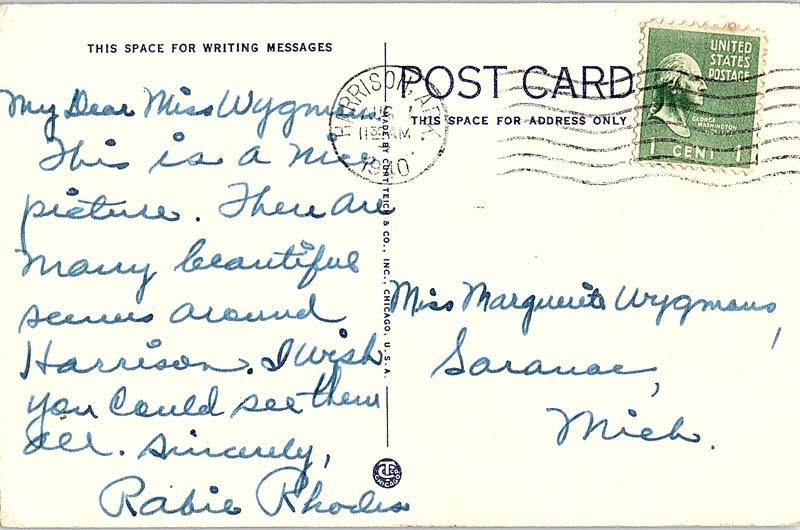 THIS SPACE FOR WRITING MESSAGES
My Dear Miss Wygmans,
This is a nice
picture. There are
many beautiful
scenes around
Harrison. I wish
you could see them
all. Sincerely,
Rabie Rhodes
MADE BY CURT TEICH & CO., INC., CHICAGO, U.S.A.
POST CARD
THIS SPACE FOR ADDRESS ONLY
HARRISON, ARK
11 30 AM
1940
UNITED
STATES
POSTAGE
GEORGE
WASHINGTON
1 CENT 1
Miss Marguerite Wygmans,
Saranac,
Mich.